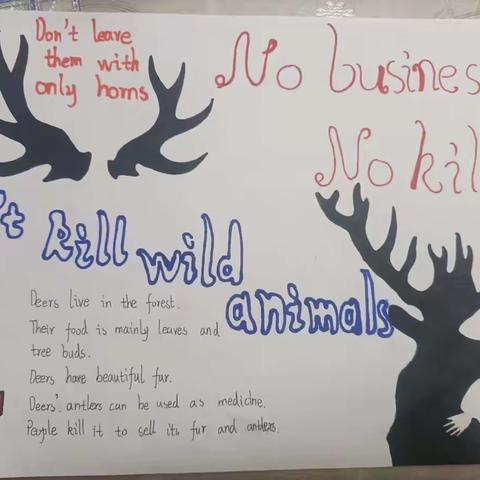 Don't leave
them with
only horns
No busines
No kil
't kill wild
animals
Deers live in the forest.
Their food is mainly leaves and
tree buds.
Deers have beautiful fur.
Deers' antlers can be used as medicine.
People kill it to sell its fur and antlers.